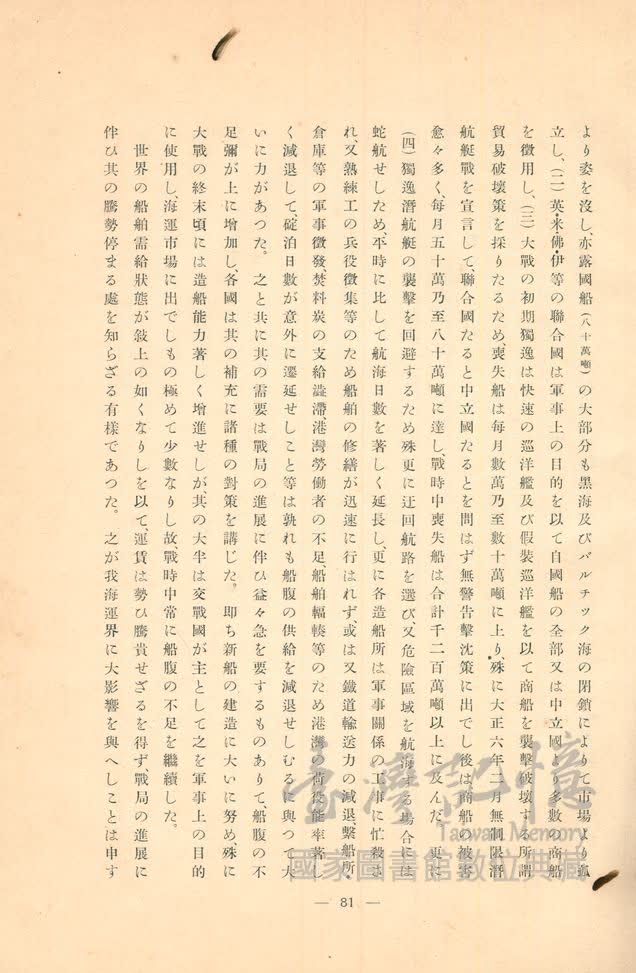 より姿を沒し、亦露國船(八十萬噸)の大部分も黑海及びバルチック海の閉鎖によりて市場より孤
立し、(二)英・米・佛・伊等の聯合國は軍事上の目的を以て自國船の全部又は中立國より多數の商船
を徵用し、(三)大戰の初期獨逸は快速の巡洋艦及び假裝巡洋艦を以て商船を襲擊破壞する所謂
貿易破壞策を採りたるため、喪失船は每月數萬乃至數十萬噸に上り、殊に大正六年二月無制限潛
航艇戰を宣言して、聯合國たると中立國たるとを問はず無警告擊沈策に出でし後は、商船の被害
愈々多く、每月五十萬乃至八十萬噸に達し、戰時中喪失船は合計千二百萬噸以上に及んだ。更に
(四)獨逸潛航艇の襲擊を回避するため殊更に迂回航路を選び、又危險區域を航海する場合には
蛇航せしため、平時に比して航海日數を著しく延長し、更に各造船所は軍事關係の工事に忙殺さ
れ、又熟練工の兵役徵集等のため船舶の修繕が迅速に行はれず、或は又鐵道輸送力の減退、繫船所、
倉庫等の軍事徵發、焚料炭の支給澁滯、港灣勞働者の不足、船舶輻輳等のため港灣の荷役能率著し
く減退して、碇泊日數が意外に遷延せしこと等は孰れも船腹の供給を減退せしむるに與つて大
いに力があつた。之と共に其の需要は戰局の進展に伴ひ益々急を要するものありて、船腹の不
足彌が上に增加し、各國は其の補充に諸種の對策を講じた。卽ち新船の建造に大いに努め、殊に
大戰の終末頃には造船能力著しく增進せしが其の大半は交戰國が主として之を軍事上の目的
に使用し、海運市場に出でしもの極めて少數なりし故、戰時中常に船腹の不足を繼續した。
世界の船舶需給狀態が敍上の如くなりしを以て、運賃は勢ひ騰貴せざるを得ず、戰局の進展に
伴ひ其の騰勢停まる處を知らざる有樣であつた。之が我海運界に大影響を與へしことは申す
— 81 —
臺灣記憶
Taiwan Memory
國家圖書館數位典藏